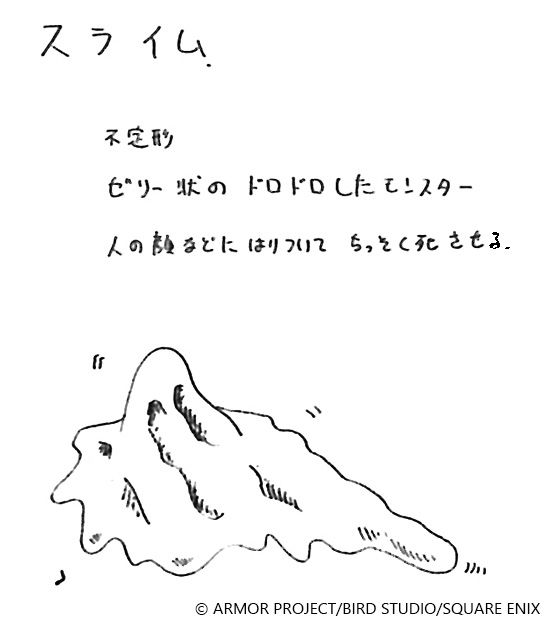 スライム
不定形
ゼリー状の ドロドロしたモンスター
人の顔などに はりついて ちっそく死させる.
© ARMOR PROJECT/BIRD STUDIO/SQUARE ENIX